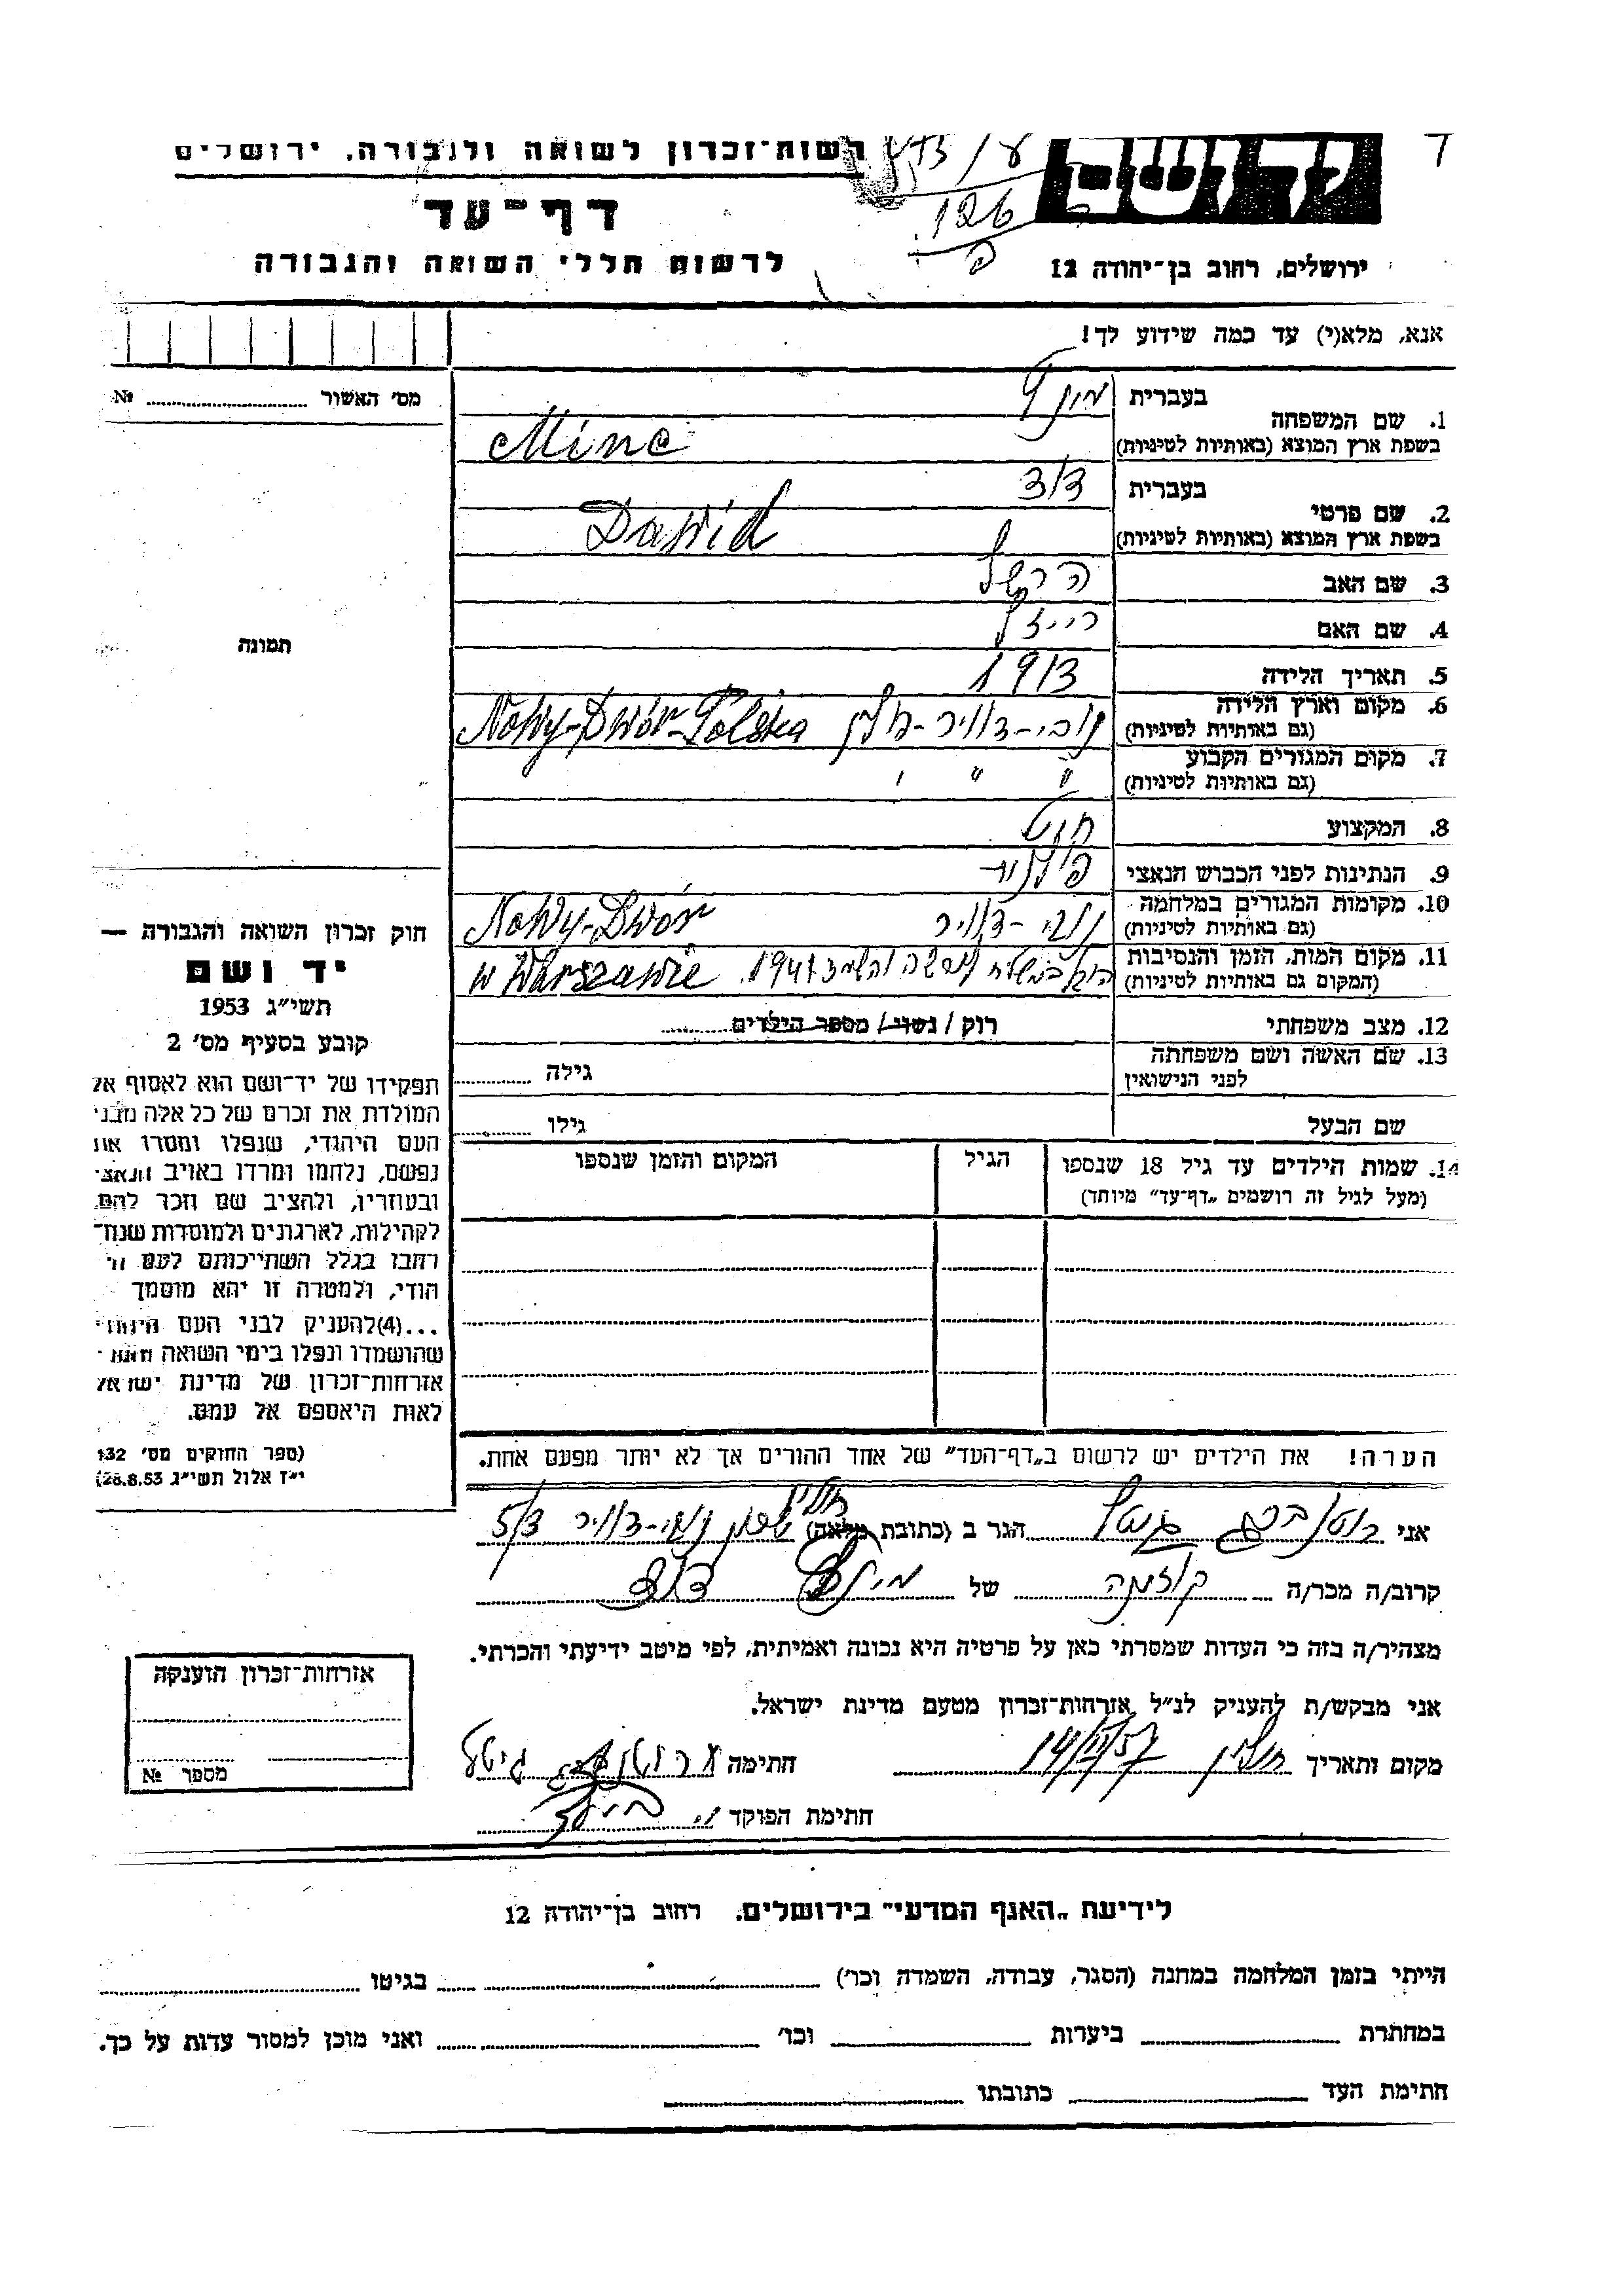 רשות־זכרון לשואה ולגבורה, ירושלים
דף־עד
לרשום חללי השואה והגבורה
126
יד ושם
ירושלים, רחוב בן־יהודה 12
אנא, מלא(י) עד כמה שידוע לך!
מס' האשור № 
1. שם המשפחה
בעברית מינץ
בשפת ארץ המוצא (באותיות לטיניות) Minc
2. שם פרטי
בעברית דוד
בשפת ארץ המוצא (באותיות לטיניות) Dawid
3. שם האב הרשל
4. שם האם רייזל
5. תאריך הלידה 1913
6. מקום וארץ הלידה
(גם באותיות לטיניות) נובי-דוויר-פולין Nowy-Dwór-Polska
7. מקום המגורים הקבוע
(גם באותיות לטיניות) " " "
8. המקצוע חיט
9. הנתינות לפני הכבוש הנאצי פולנית
10. מקומות המגורים במלחמה
(גם באותיות לטיניות) נובי-דוויר Nowy-Dwór
11. מקום המות, הזמן והנסיבות
(המקום גם באותיות לטיניות) 1941 w Warszawie
12. מצב משפחתי רוק / נשוי / מספר הילדים
13. שם האשה ושם משפחתה
לפני הנישואין גילה
שם הבעל גילו
14. שמות הילדים עד גיל 18 שנספו
(מעל לגיל זה רושמים „דף־עד" מיוחד)
הגיל
המקום והזמן שנספו
תמונה
חוק זכרון השואה והגבורה —
יד ושם
תשי"ג 1953
קובע בסעיף מס' 2
תפקידו של יד־ושם הוא לאסוף אל
המולדת את זכרם של כל אלה מבני
העם היהודי, שנפלו ומסרו את
נפשם, נלחמו ומרדו באויב הנאצי
ובעוזריו, ולהציב שם וזכר להם,
לקהילות, לארגונים ולמוסדות שנח־
רבו בגלל השתייכותם לעם הי־
הודי, ולמטרה זו יהא מוסמך
...(4)להעניק לבני העם היהודי
שהושמדו ונפלו בימי השואה
אזרחות־זכרון של מדינת ישראל
לאות היאספם אל עמם.
(ספר החוקים מס' 132
י"ז אלול תשי"ג 28.8.53)
הערה! את הילדים יש לרשום ב„דף־העד" של אחד ההורים אך לא יותר מפעם אחת.
אני רוטנברג גיטל הגר ב (כתובת מלאה) חולון
קרוב/ה מכר/ה של מינץ דוד
מצהיר/ה בזה כי העדות שמסרתי כאן על פרטיה היא נכונה ואמיתית, לפי מיטב ידיעתי והכרתי.
אני מבקש/ת להעניק לנ"ל אזרחות־זכרון מטעם מדינת ישראל.
מקום ותאריך חולון חתימה רוטנברג גיטל
חתימת הפוקד
אזרחות־זכרון הוענקה
מספר №
לידיעת „האגף המדעי" בירושלים. רחוב בן־יהודה 12
הייתי בזמן המלחמה במחנה (הסגר, עבודה, השמדה וכו') בגיטו
במחתרת ביערות וכו' ואני מוכן למסור עדות על כך.
חתימת העד כתובתו